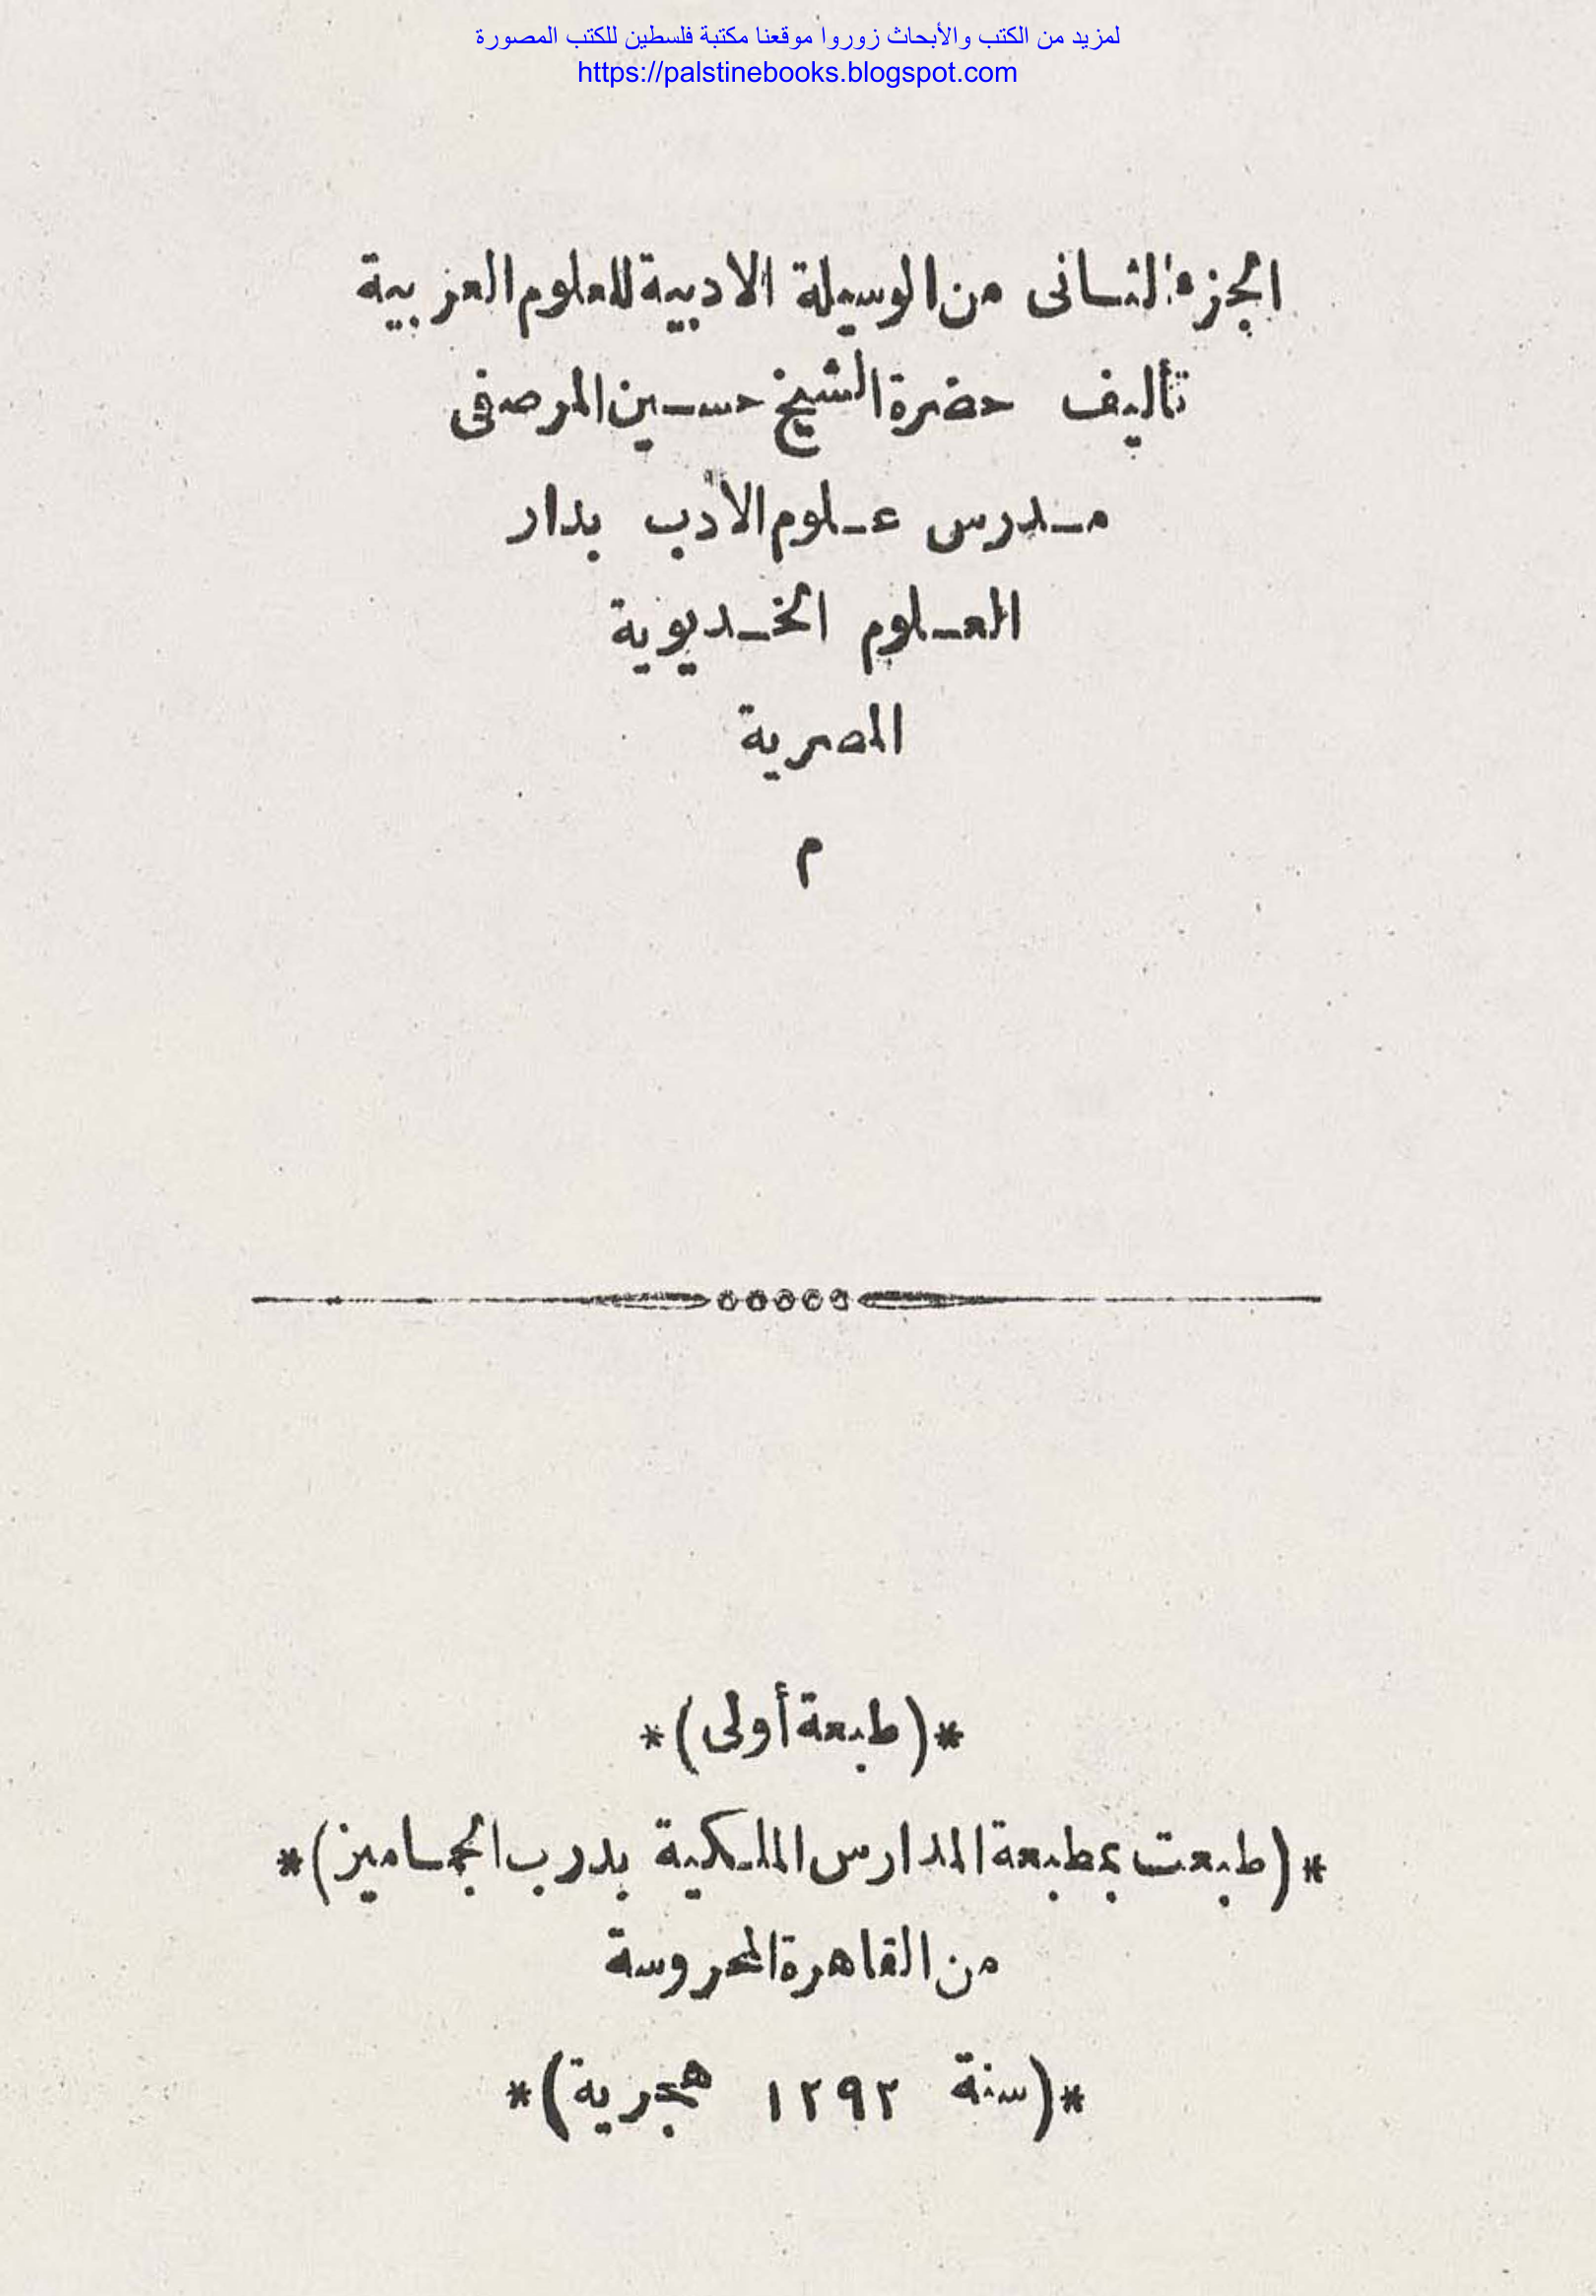 لمزيد من الكتب والأبحاث زوروا موقعنا مكتبة فلسطين للكتب المصورة
https://palstinebooks.blogspot.com
الجزء الثانى من الوسيلة الادبية للعلوم العربية
تأليف حضرة الشيخ حسين المرصفى
مدرس علوم الادب بدار
العلوم الخديوية
المصرية
م
*(طبعة أولى)*
*(طبعت بمطبعة المدارس الملكية بدرب الجماميز)*
من القاهرة المحروسة
*(سنة ١٢٩٢ هجرية)*